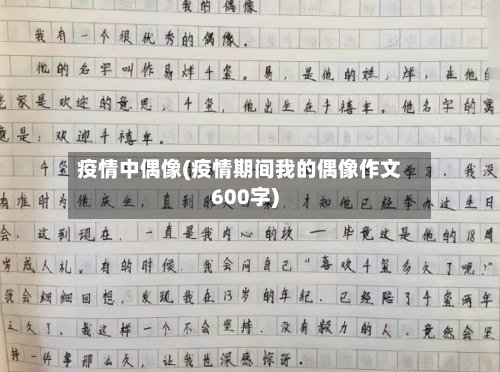 我的偶像
我有一个很优秀的偶像。
他的名字叫作易烊千玺。易,是他的姓;烊,在他的
老家是欢迎的意思;千玺,他出生在千禧年。他名字的寓
意是:欢迎千禧年。
疫情中偶像(疫情期间我的偶像作文
600字)
千玺 学才,我没
有准时为他庆生,直到 才知他已经举办过生日
会,这到现在,一直是我内心的坎——毕竟这是他的18周
岁成人礼。有的时候,我会问自己“喜欢千玺多久了呢?”
我会细细回想,发现我在13岁的年纪,已经陪了千玺两年
之久了。我这样一个不会坚持、没有毅力的人,竟然会坚
持一件事那么久,让我也深感惊讶。